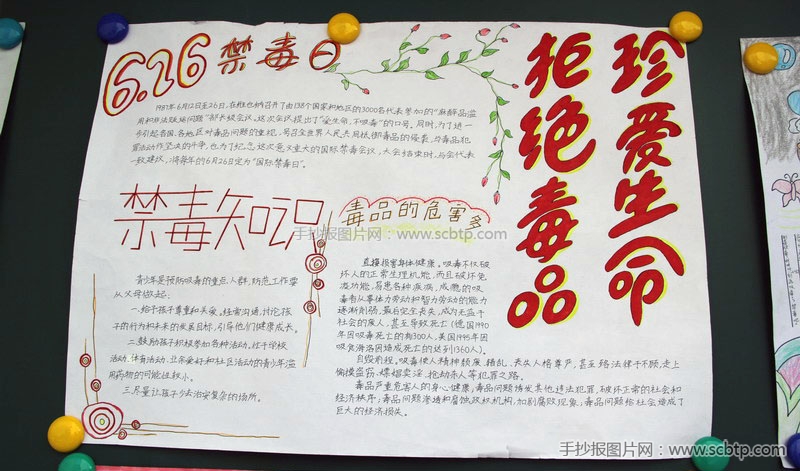 6.26禁毒日
1987年6月12日至26日,在维也纳召开了由138个国家和地区的3000名代表参加的“麻醉品滥
用和非法贩运问题”部长级会议。这次会议提出了“爱生命,不吸毒”的口号。同时,为了进一
步引起各国、各地区对毒品问题的重视,号召全世界人民共同抵御毒品的侵袭,与毒品犯
罪活动作坚决的斗争,也为了纪念这次意义重大的国际禁毒会议,大会结束时,与会代表一
致建议,将每年的6月26日定为“国际禁毒日”。
珍爱生命
拒绝毒品
禁毒知识
青少年是预防吸毒的重点人群,防范工作要
从父母做起:
一.给予孩子尊重和关爱。经常沟通,讨论孩
子的行为和未来的发展目标,引导他们健康成长。
二.鼓励孩子积极参加各种活动。往于学校
活动、体育活动、业余爱好和社区活动的青少年滥
用药物的可能性较小。
三.尽量让孩子少去治安复杂的场所。
毒品的危害多
直接损害身体健康。吸毒不仅破
坏人的正常生理机能,而且破坏免
疫功能,易患各种疾病,成瘾的吸
毒者从事体力劳动和智力劳动的能力
逐渐削弱,最后完全丧失,成为无益于
社会的废人,甚至导致死亡(德国1990
年因吸毒死亡的有300人,美国1995年因
吸食海洛因造成死亡的达到1360人)。
自毁前程。吸毒使人精神颓废、错乱、丧失人格尊严,甚至铬法律于不顾,走上
偷摸盗窃、嫖娼卖淫、抢劫杀人等犯罪之路。
毒品严重危害人的身心健康,毒品问题诱发其他违法犯罪,破坏正常的社会和
经济秩序;毒品问题渗透和腐蚀政权机构,加剧腐败现象;毒品问题给社会造成了
巨大的经济损失。
手抄报图片网:www.scbtp.com
手抄报图片网:www.scbtp.com